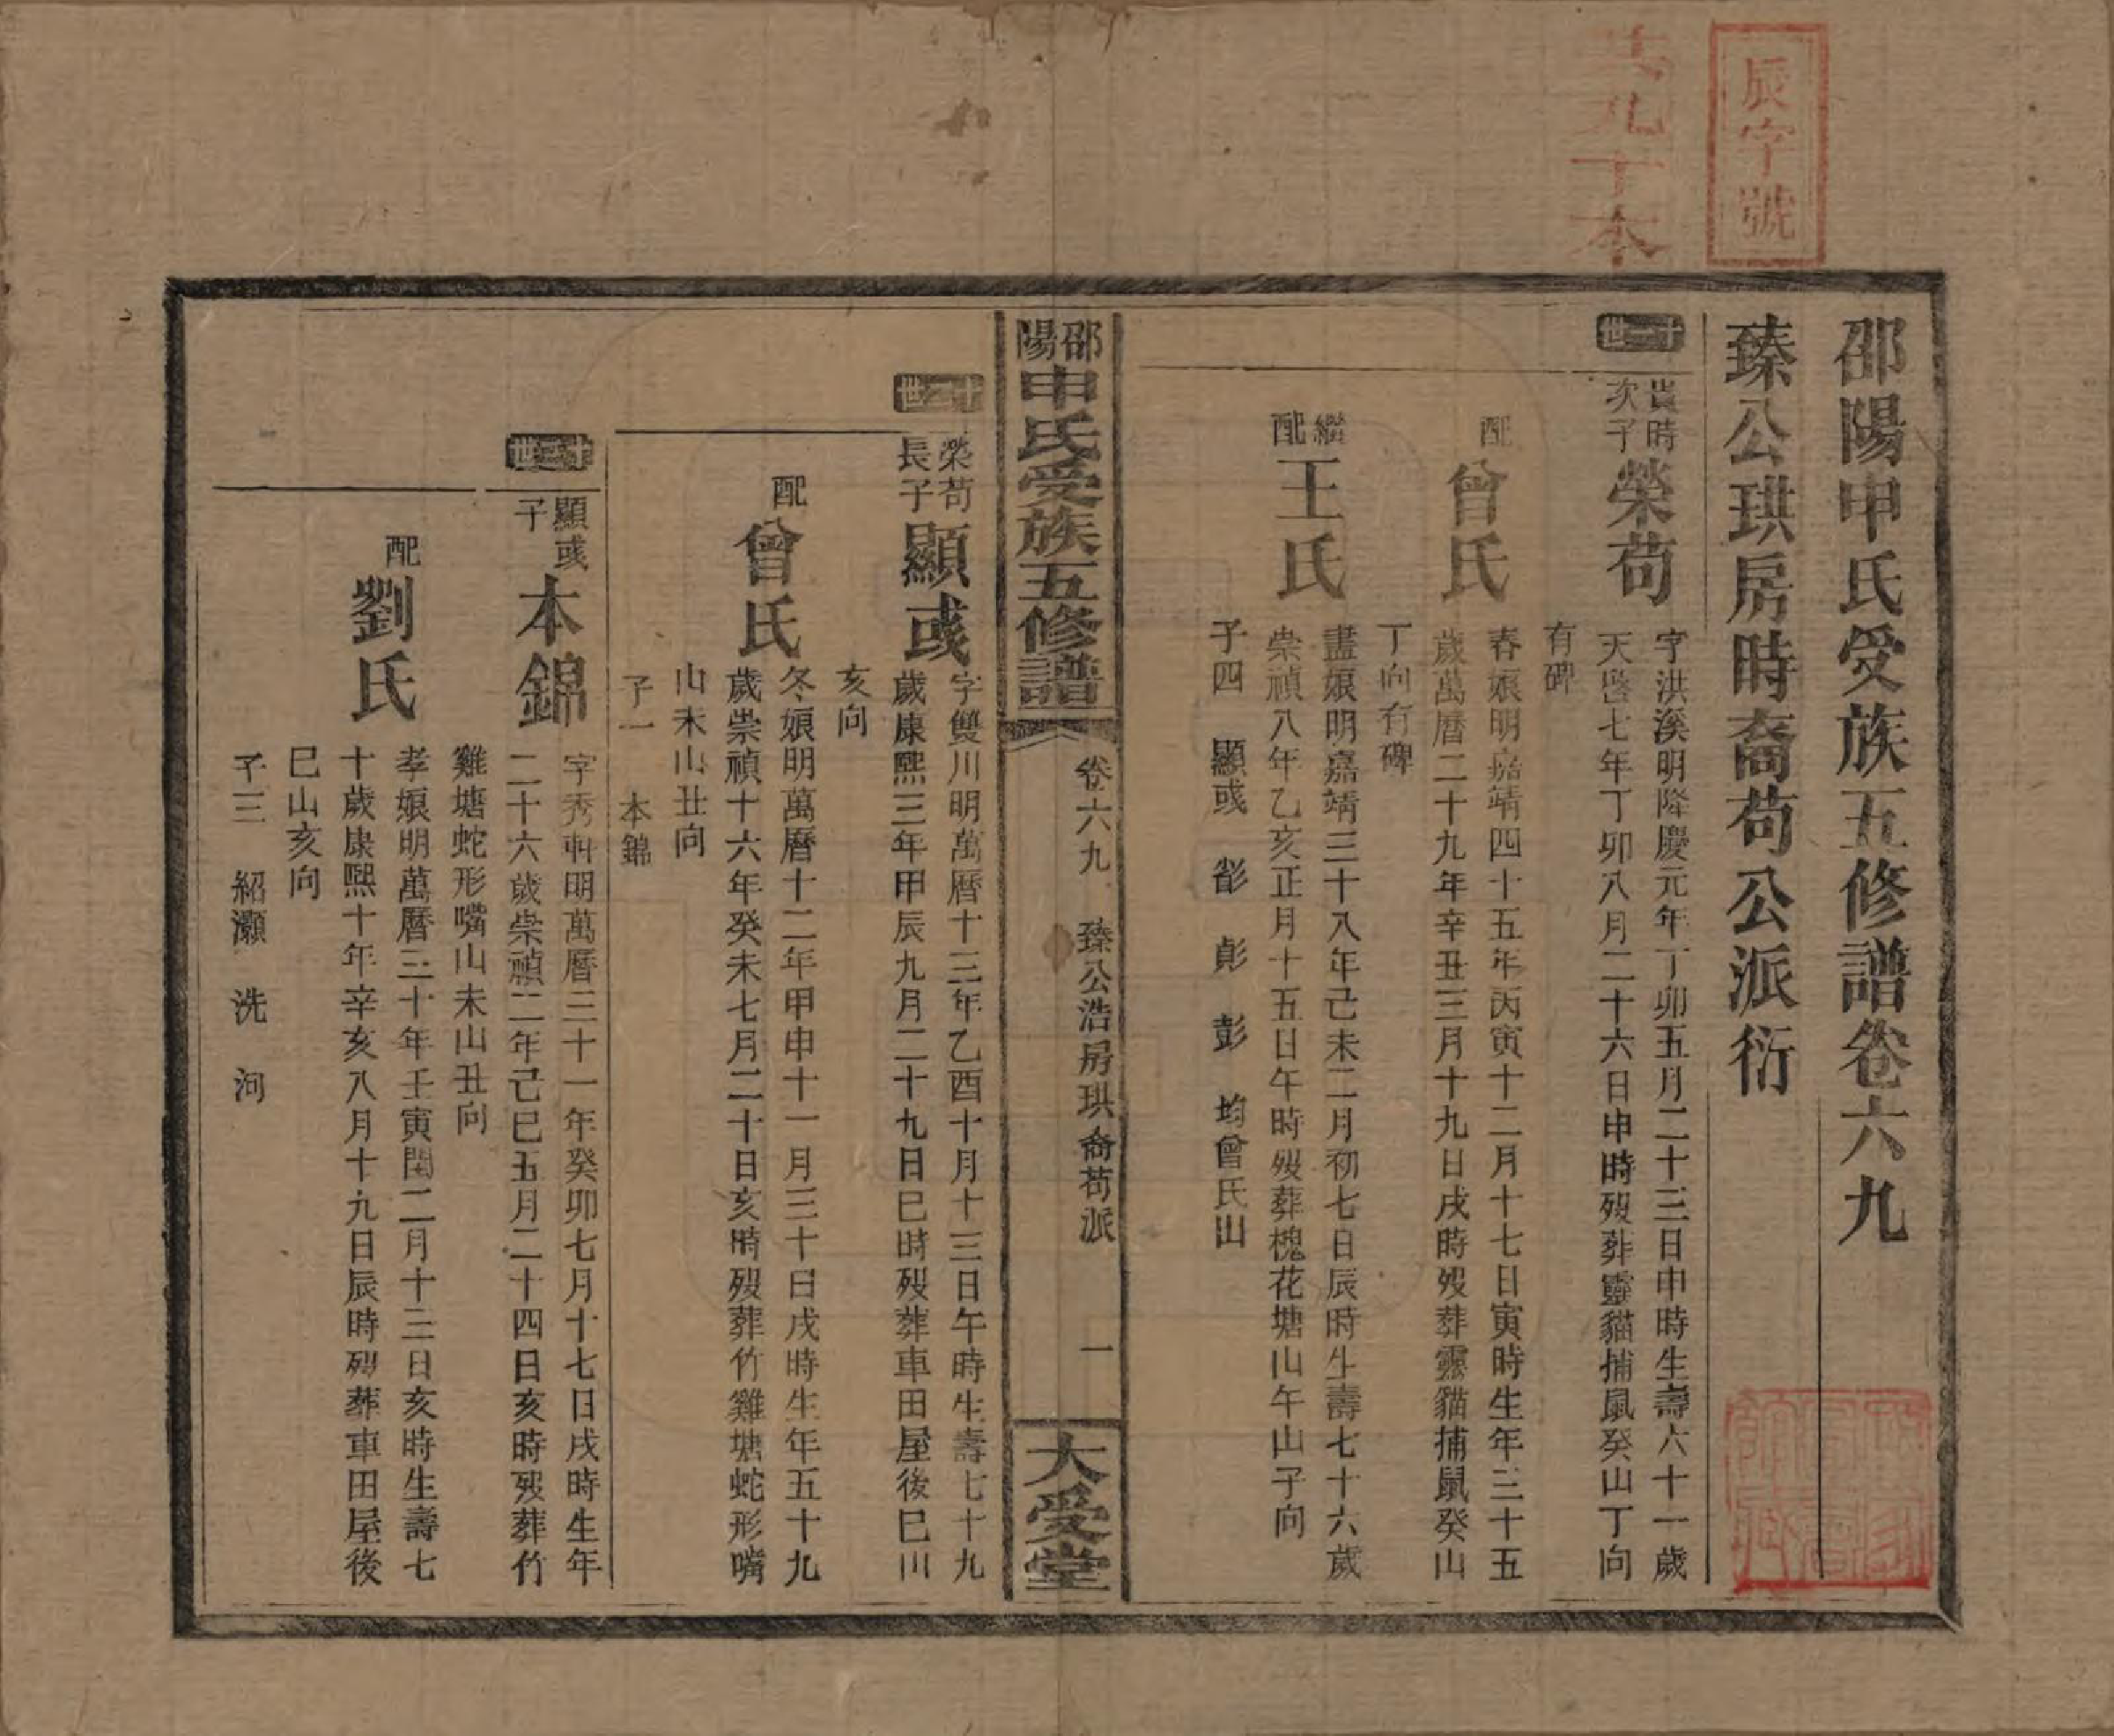 辰字號
九十本
邵陽申氏受族五修譜卷六九
臻公珙房時裔苟公派衍
十一世
貴時
次子
榮苟
字洪溪明隆慶元年丁卯五月二十三日申時生壽六十一歲
天啓七年丁卯八月二十六日申時歿葬靈貓捕鼠癸山丁向
有碑
配
曾氏
春娘明嘉靖四十五年丙寅十二月十七日寅時生年三十五
歲萬曆二十九年辛丑三月十九日戌時歿葬靈貓捕鼠癸山
丁向有碑
繼
配
王氏
盡娘明嘉靖三十八年己未二月初七日辰時生壽七十六歲
崇禎八年乙亥正月十五日午時歿葬槐花塘山午山子向
子四 顯彧 彰 彪 彭 均曾氏出
邵陽申氏受族五修譜
卷六九 臻公浩房珙裔苟派 一
大受堂
十二世
榮苟
長子
顯彧
字雙川明萬曆十三年乙酉十月十三日午時生壽七十九
歲康熙三年甲辰九月二十九日巳時歿葬車田屋後巳山
亥向
配
曾氏
冬娘明萬曆十二年甲申十一月三十日戌時生年五十九
歲崇禎十六年癸未七月二十日亥時歿葬竹雞塘蛇形嘴
山未山丑向
子一 本錦
十三世
顯彧
子
本錦
字秀軒明萬曆三十一年癸卯七月十七日戌時生年
二十六歲崇禎二年己巳五月二十四日亥時歿葬竹
雞塘蛇形嘴山未山丑向
配
劉氏
孝娘明萬曆三十年壬寅閏二月十三日亥時生壽七
十歲康熙十年辛亥八月十九日辰時歿葬車田屋後
巳山亥向
子三 紹灝 洗 河